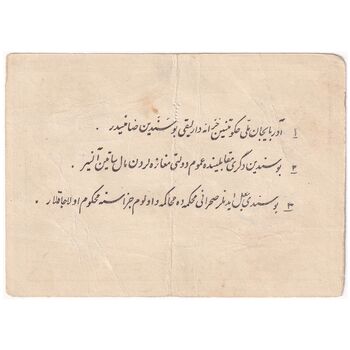 ۱ آذربایجان ملی حکومتینین خزانه دارلیقی بو سندین ضامنیدیر .
۲ بو سندین دگری مقابلینده عموم دولتی مغازه لردن مال ساتین آلنیر
۳ بو سندی جعل ایدنلر صحرائی محکمه ده محاکمه و اولوم جزاسنه محکوم اولاجاقلار .